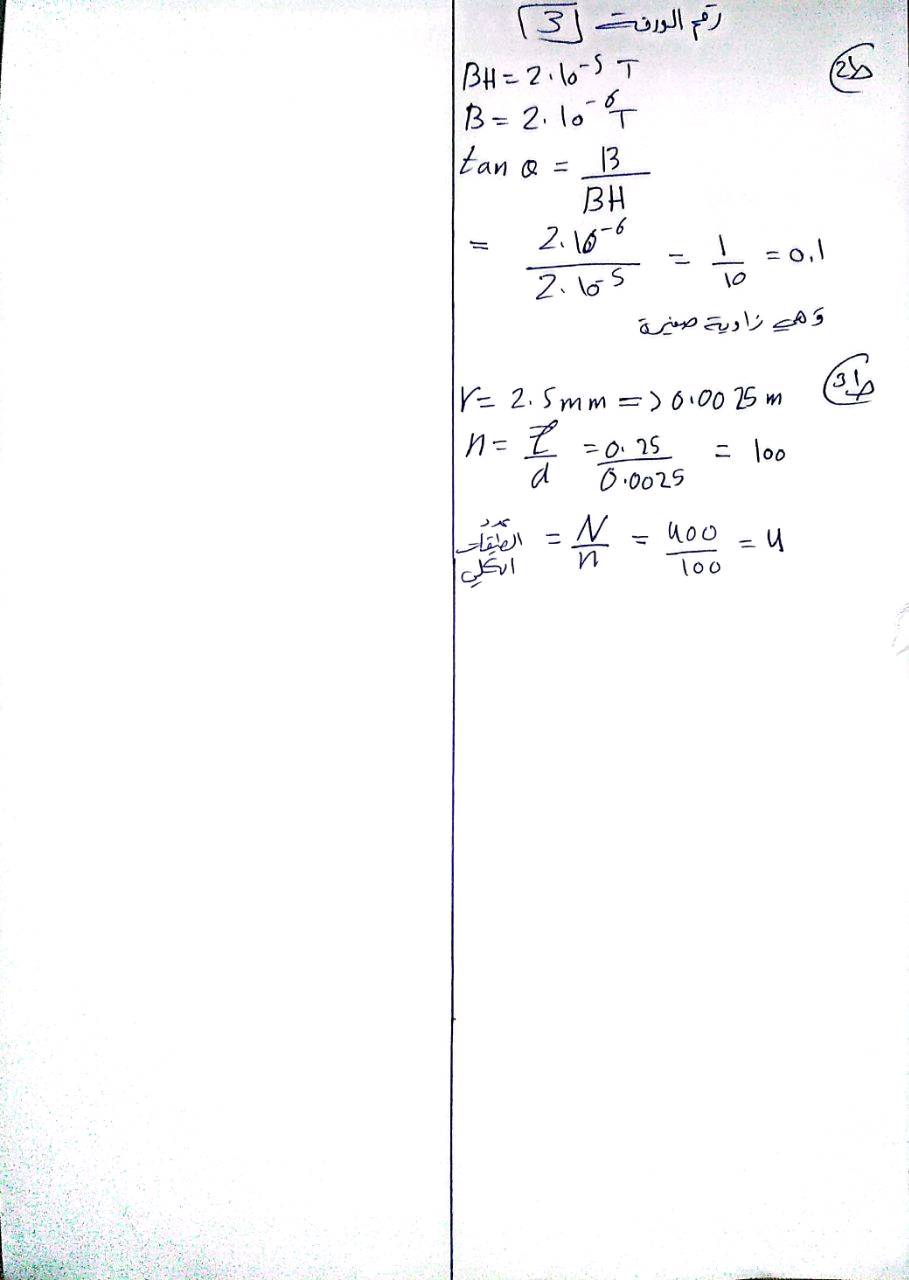 رقم الورقة 3
ط2
BH = 2.10-5 T
B = 2.10-6 T
tan θ = B / BH
= 2.10-6 / 2.10-5 = 1/10 = 0.1
وهي زاوية صغيرة
ط3
r = 2.5mm => 0.0025 m
n = l / d = 0.25 / 0.0025 = 100
عدد الطبقات الكلي = N / n = 400 / 100 = 4